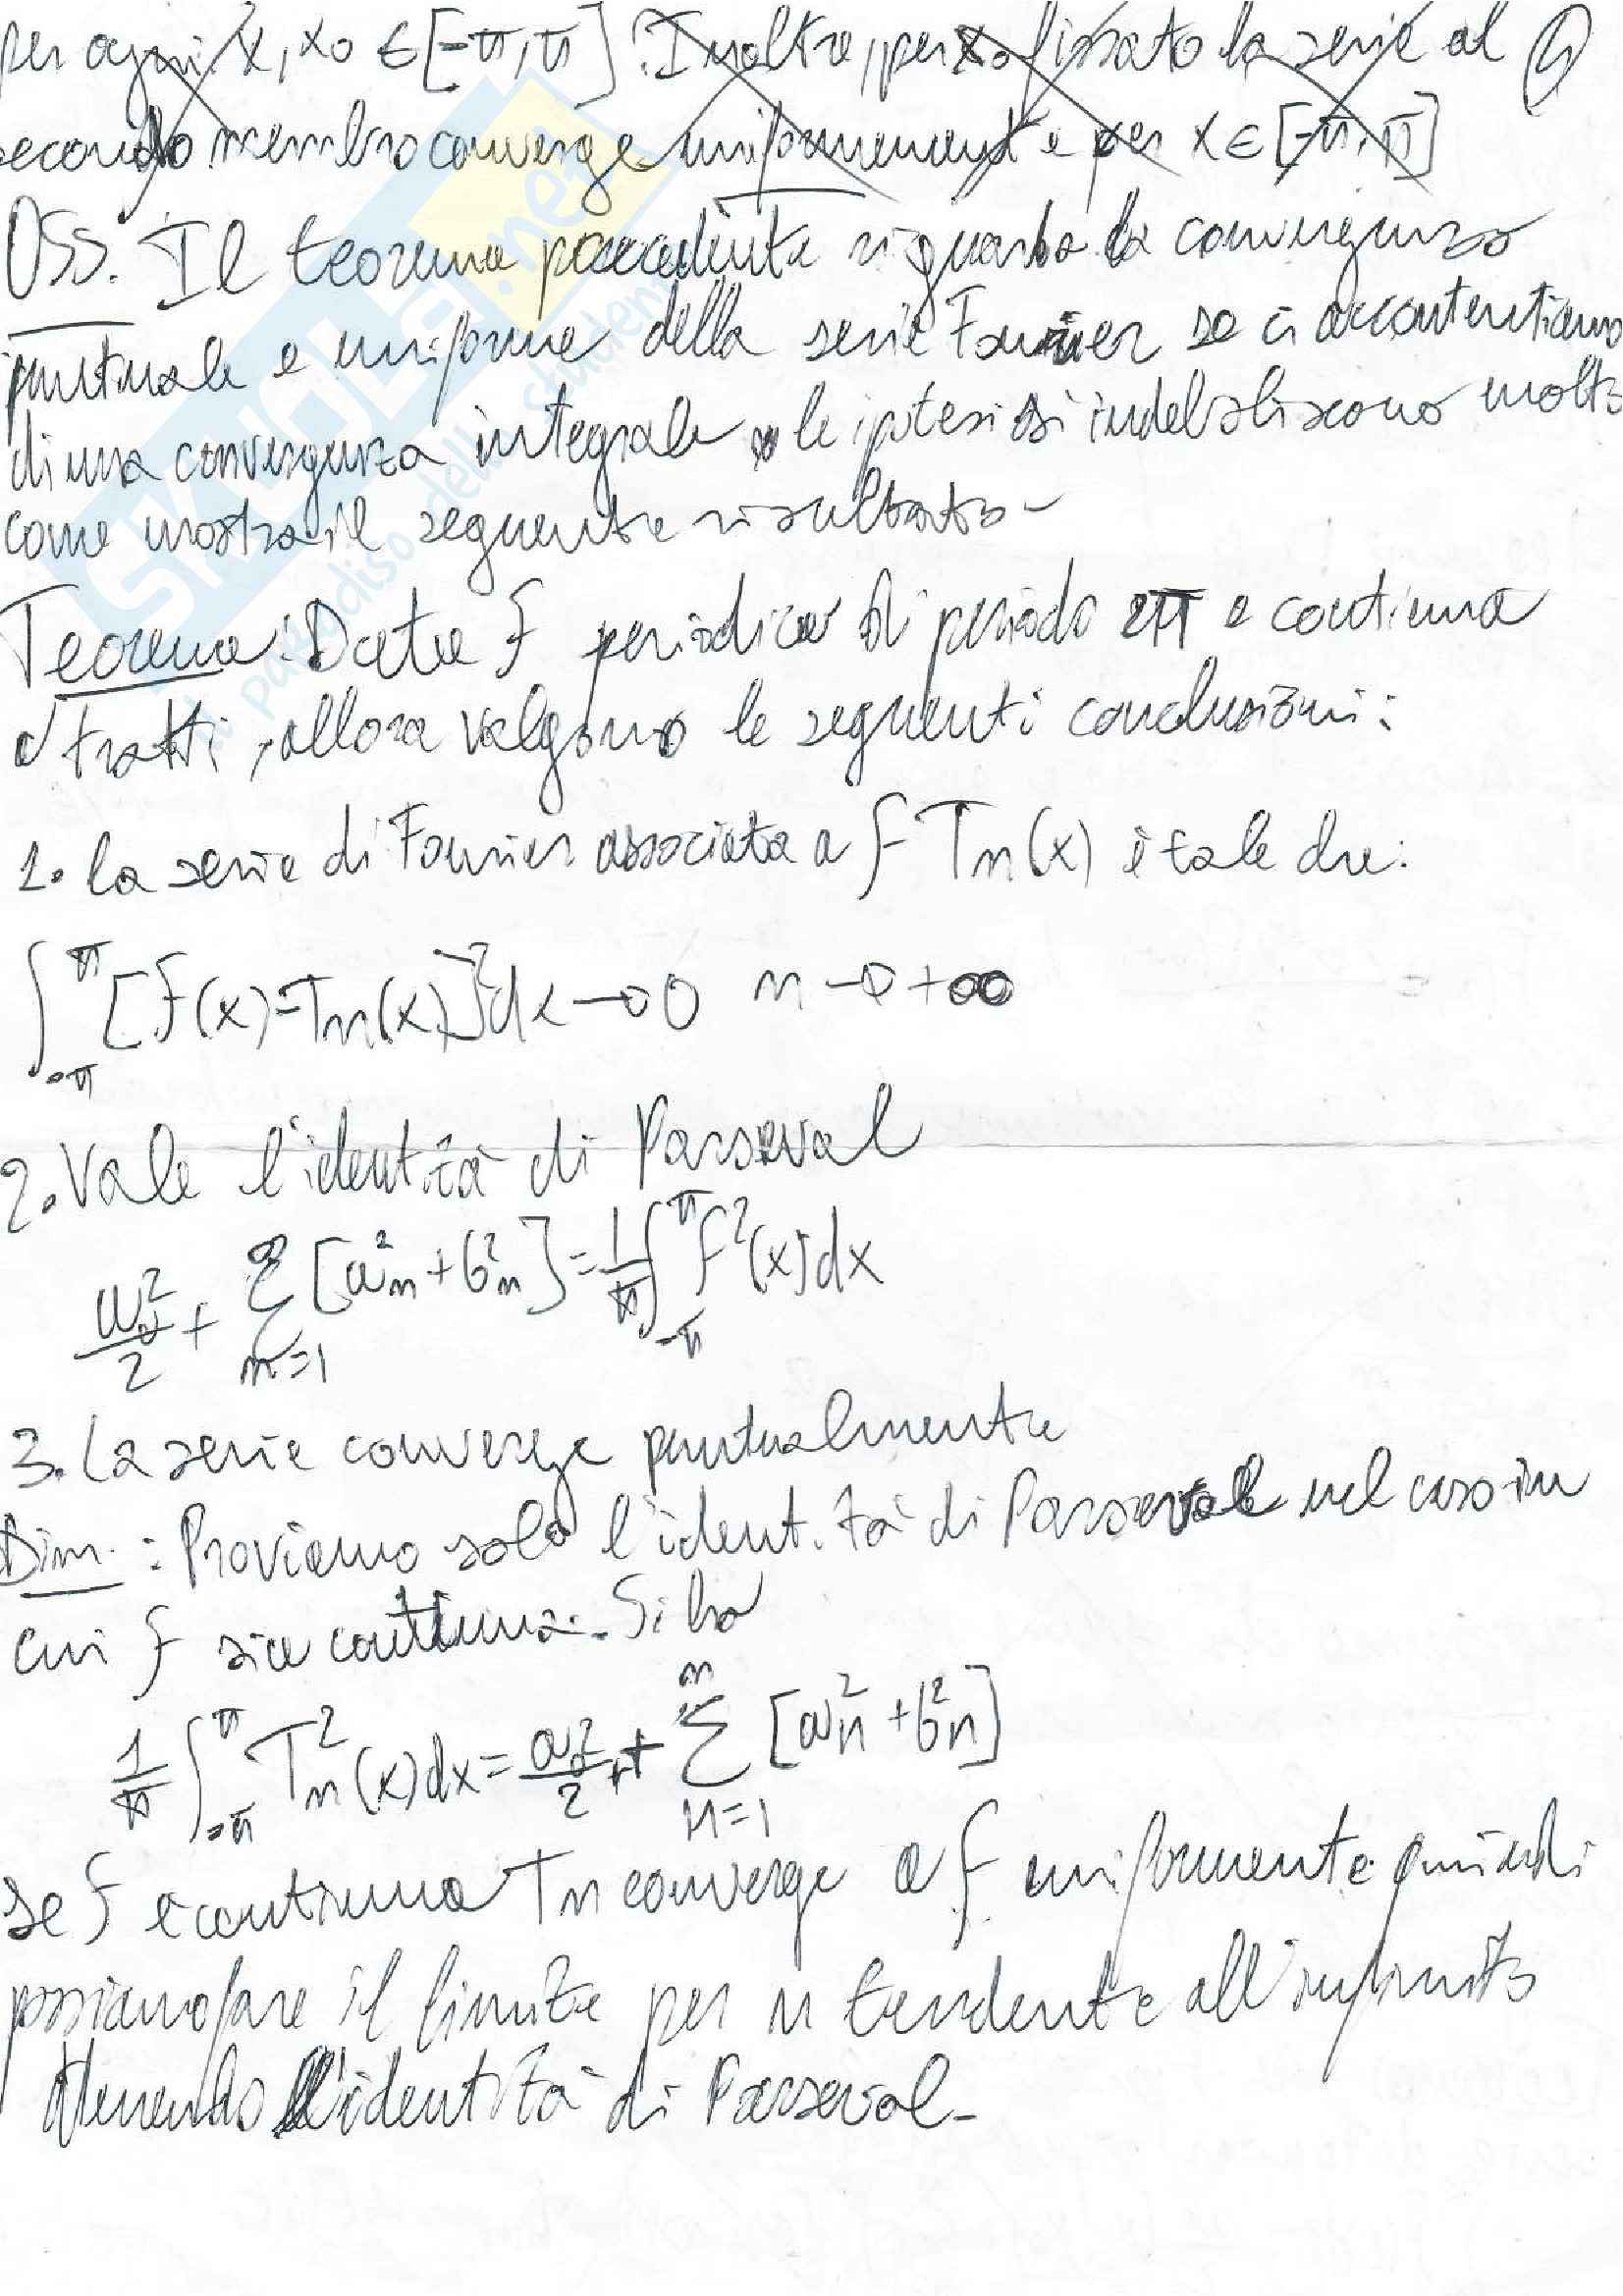 per ogni x, x₀ ∈ [-π, π]. Inoltre, per x₀ fissato la serie al
secondo membro converge uniformemente per x ∈ [-π, π]
Oss. Il teorema precedente riguarda la convergenza
puntuale e uniforme della serie Fourier se ci accontentiamo
di una convergenza integrale le ipotesi si indeboliscono molto
come mostra il seguente risultato-
Teorema: Data f periodica di periodo 2π e continua
a tratti, allora valgono le seguenti conclusioni:
1. la serie di Fourier associata a f Tn(x) è tale che:
∫_{-π}^{π} [f(x)-Tn(x)]² dx → 0 n → +∞
2. Vale l'identità di Parseval
a₀²/2 + Σ_{n=1}^{∞} [a²n + b²n] = 1/π ∫_{-π}^{π} f²(x) dx
3. La serie converge puntualmente
Dim.: Proviamo solo l'identità di Parseval nel caso in
cui f sia continua. Si ha
1/π ∫_{-π}^{π} T²n(x) dx = a₀²/2 + Σ_{n=1}^{n} [a²n + b²n]
se f è continua Tn converge a f uniformente quindi
possiamo fare il limite per n tendente all'infinito
ottenendo l'identità di Parseval-
SKUOLA.net
il paradiso dello studente